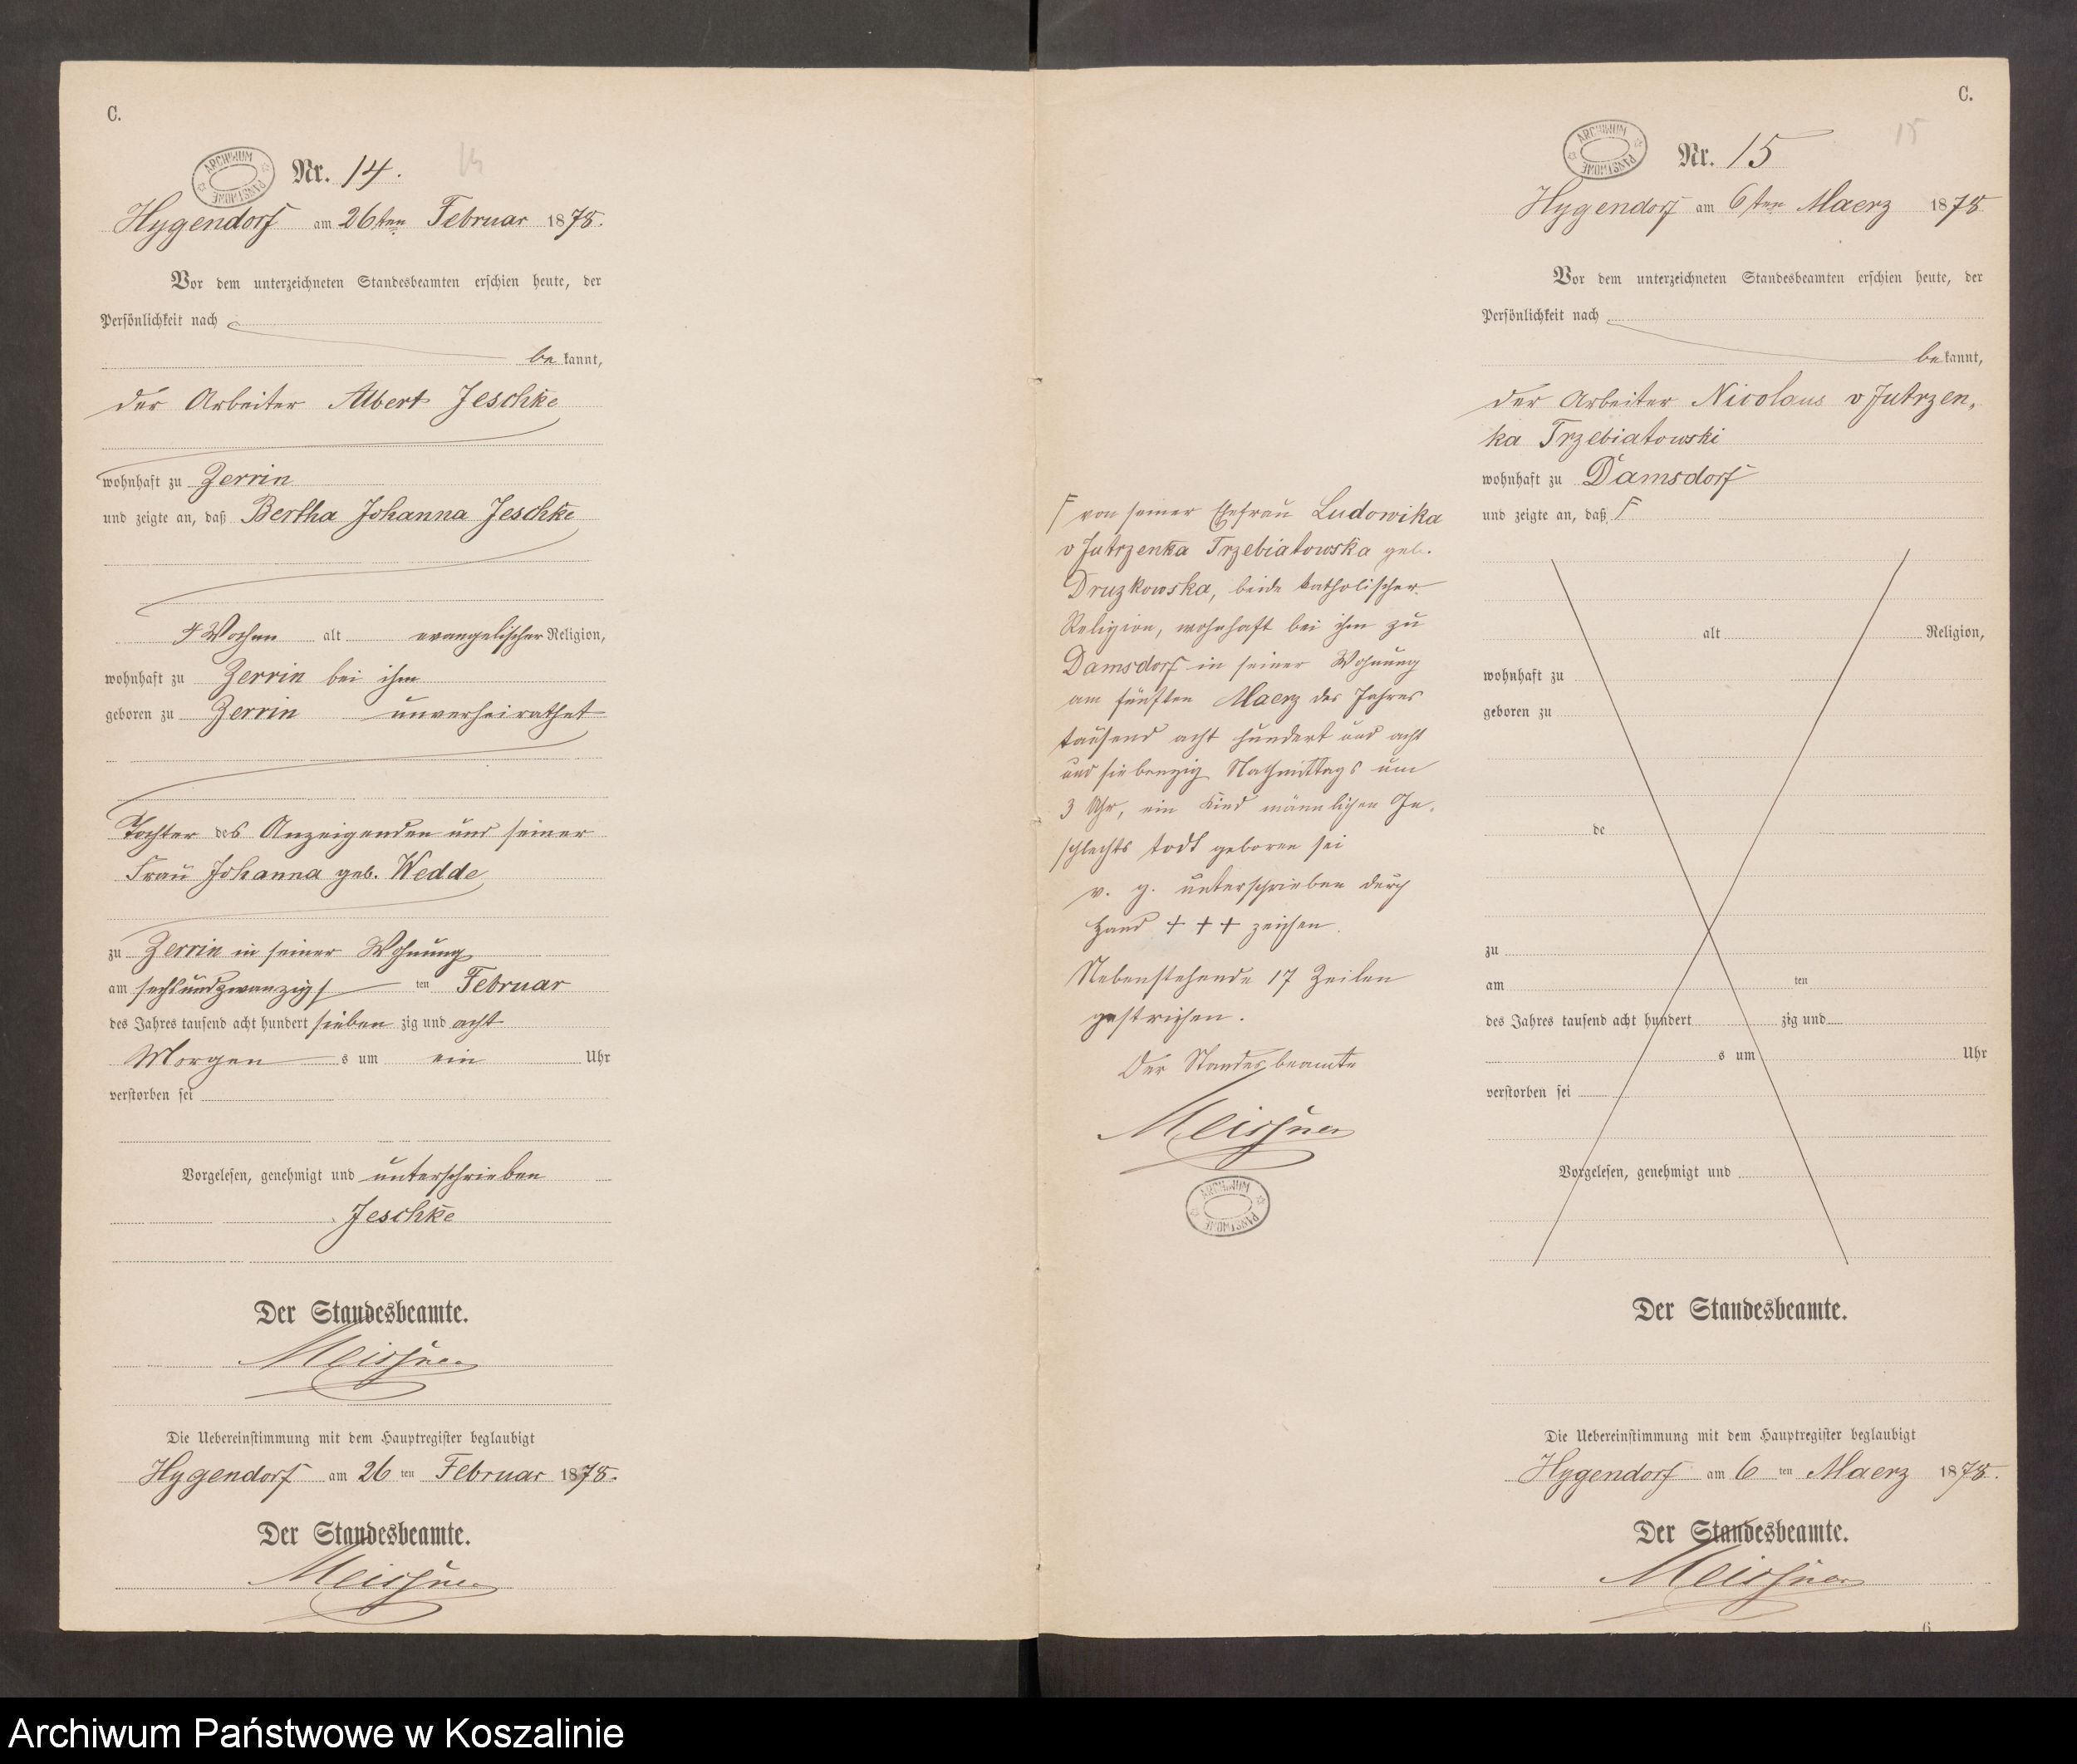 C.
ARCHIWUM PAŃSTWOWE
Nr. 14.
Hygendorf am 26ten Februar 1878.
Vor dem unterzeichneten Standesbeamten erschien heute, der
Persönlichkeit nach
be kannt,
der Arbeiter Albert Jeschke
wohnhaft zu Zerrin
und zeigte an, daß Bertha Johanna Jeschke
4 Wochen alt evangelischer Religion,
wohnhaft zu Zerrin bei ihm
geboren zu Zerrin unverheirathet
Tochter des Anzeigenden und seiner
Frau Johanna geb. Wedde
zu Zerrin in seiner Wohnung
am sechsundzwanzigs ten Februar
des Jahres tausend acht hundert sieben zig und acht
Morgen s um ein Uhr
verstorben sei
Vorgelesen, genehmigt und unterschrieben
Jeschke
Der Standesbeamte.
Meissner
Die Uebereinstimmung mit dem Hauptregister beglaubigt
Hygendorf am 26 ten Februar 1878.
Der Standesbeamte.
Meissner
C.
15
ARCHIWUM PAŃSTWOWE
Nr. 15
Hygendorf am 6ten Maerz 1878
Vor dem unterzeichneten Standesbeamten erschien heute, der
Persönlichkeit nach
bekannt,
der Arbeiter Nicolaus v Jutrzen-
ka Trzebiatowski
wohnhaft zu Damsdorf
und zeigte an, daß F
F von seiner Ehefrau Ludowika
v Jutrzenka Trzebiatowska geb.
Druzkowska, beide katholischer
Religion, wohnhaft bei ihm zu
Damsdorf in seiner Wohnung
am fünften Maerz des Jahres
tausend acht hundert und acht
und siebenzig Nachmittags um
3 Uhr, ein Kind männlichen Ge-
schlechts todt geboren sei
v. g. unterschrieben durch
Hand + + + zeichen.
Nebenstehende 17 Zeilen
gestrichen.
Der Standesbeamte
Meissner
ARCHIWUM PAŃSTWOWE
alt Religion,
wohnhaft zu
geboren zu
de
zu
am ten
des Jahres tausend acht hundert zig und
s um Uhr
verstorben sei
Vorgelesen, genehmigt und
Der Standesbeamte.
Die Uebereinstimmung mit dem Hauptregister beglaubigt
Hygendorf am 6 ten Maerz 1878.
Der Standesbeamte.
Meissner
6
Archiwum Państwowe w Koszalinie